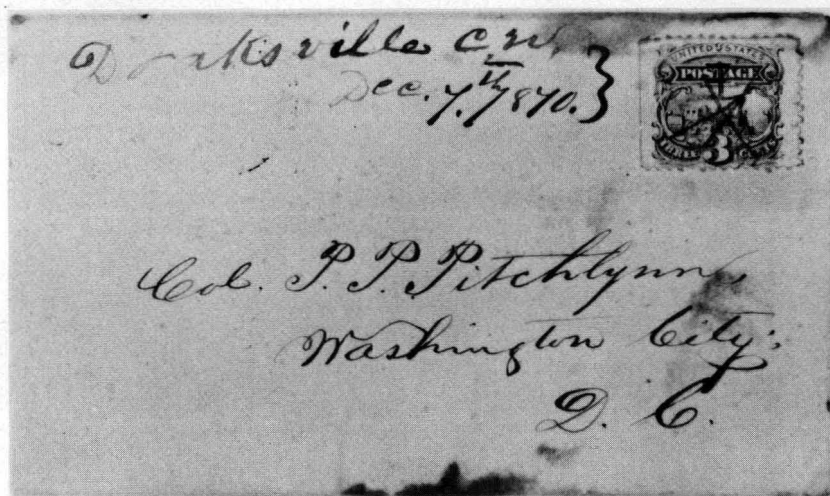 Doaksville C.N.
Dec. 7.th 1870.
UNITED STATES
POSTAGE
THREE CENTS
3
Col. P. P. Pitchlynn,
Washington City:
D. C.